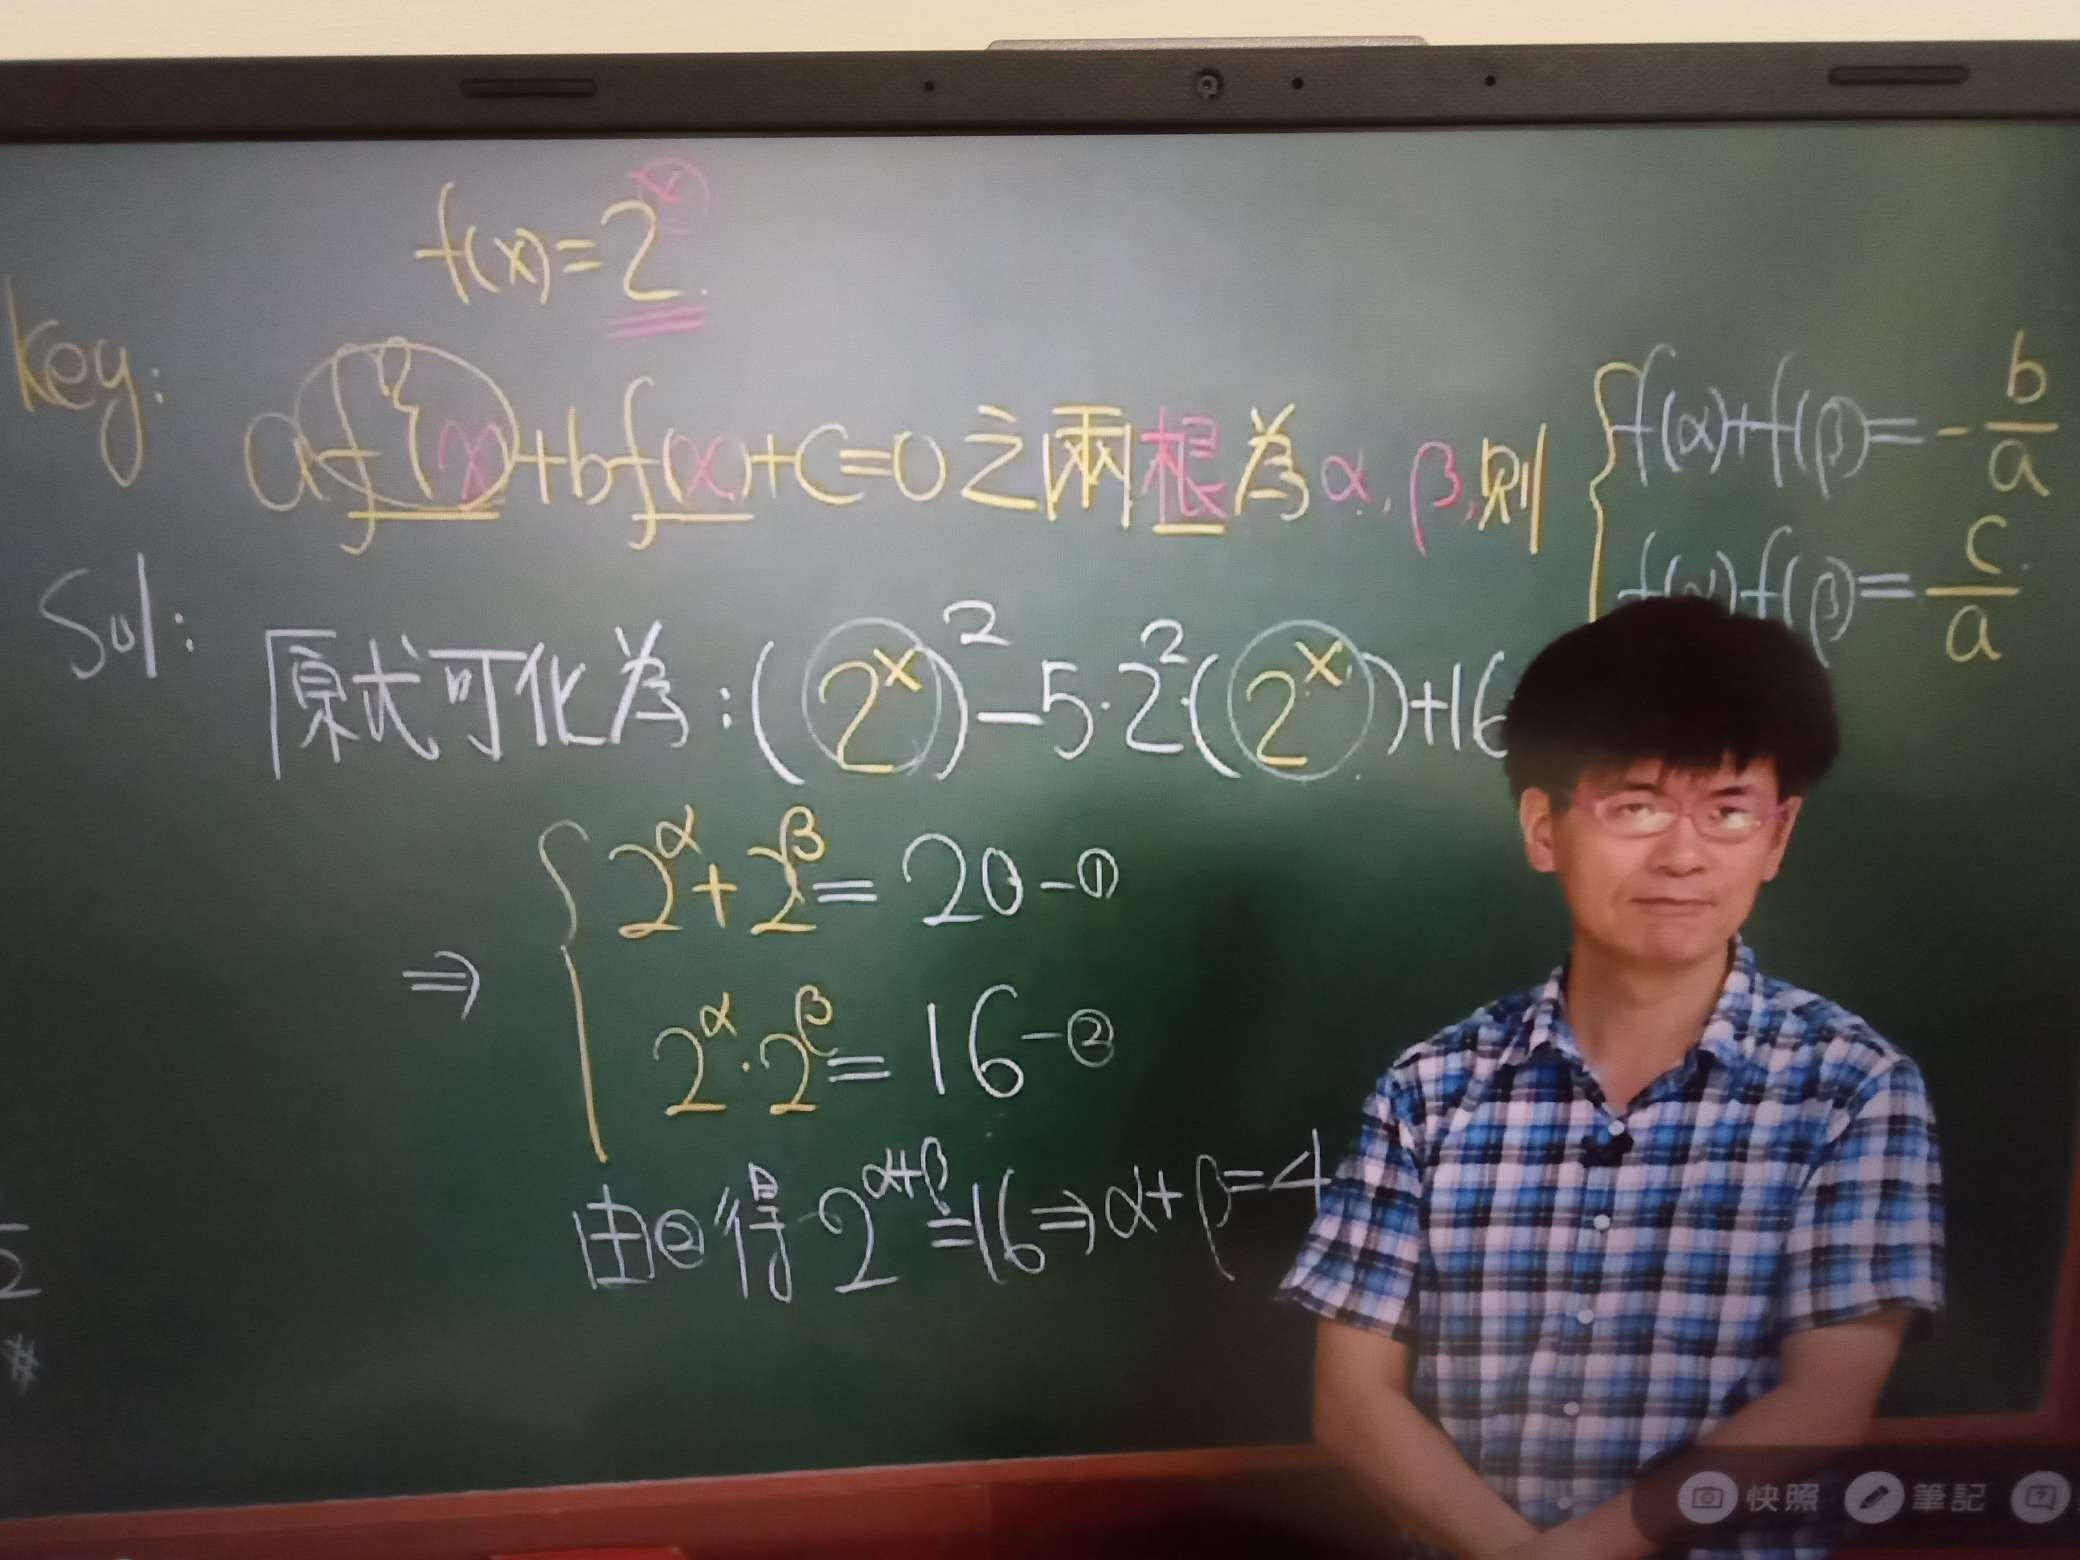 f(x)=2^x
key:
af²(x)+bf(x)+c=0之兩根為α,β,則
f(α)+f(β)=-b/a
f(α)f(β)=c/a
Sol:
原式可化為:(2^x)²-5·2²(2^x)+16
⇒
2^α+2^β=20-①
2^α·2^β=16-②
由②得 2^(α+β)=16⇒α+β=4
2
※
快照 筆記